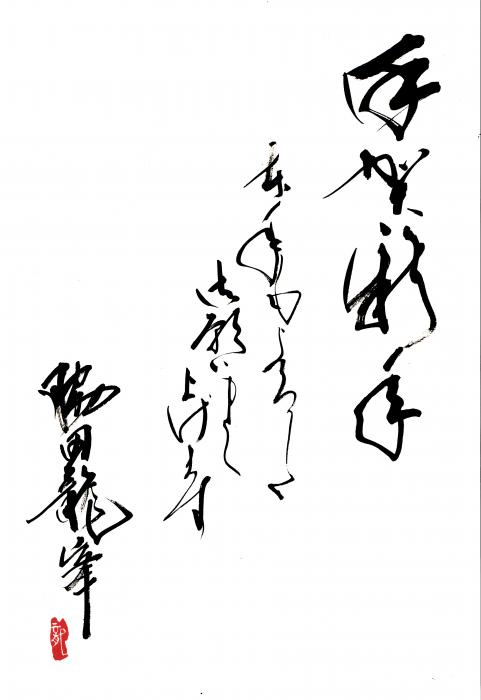 賀新年
本年もよろしく
御願い申し上げます
脇田龍峯